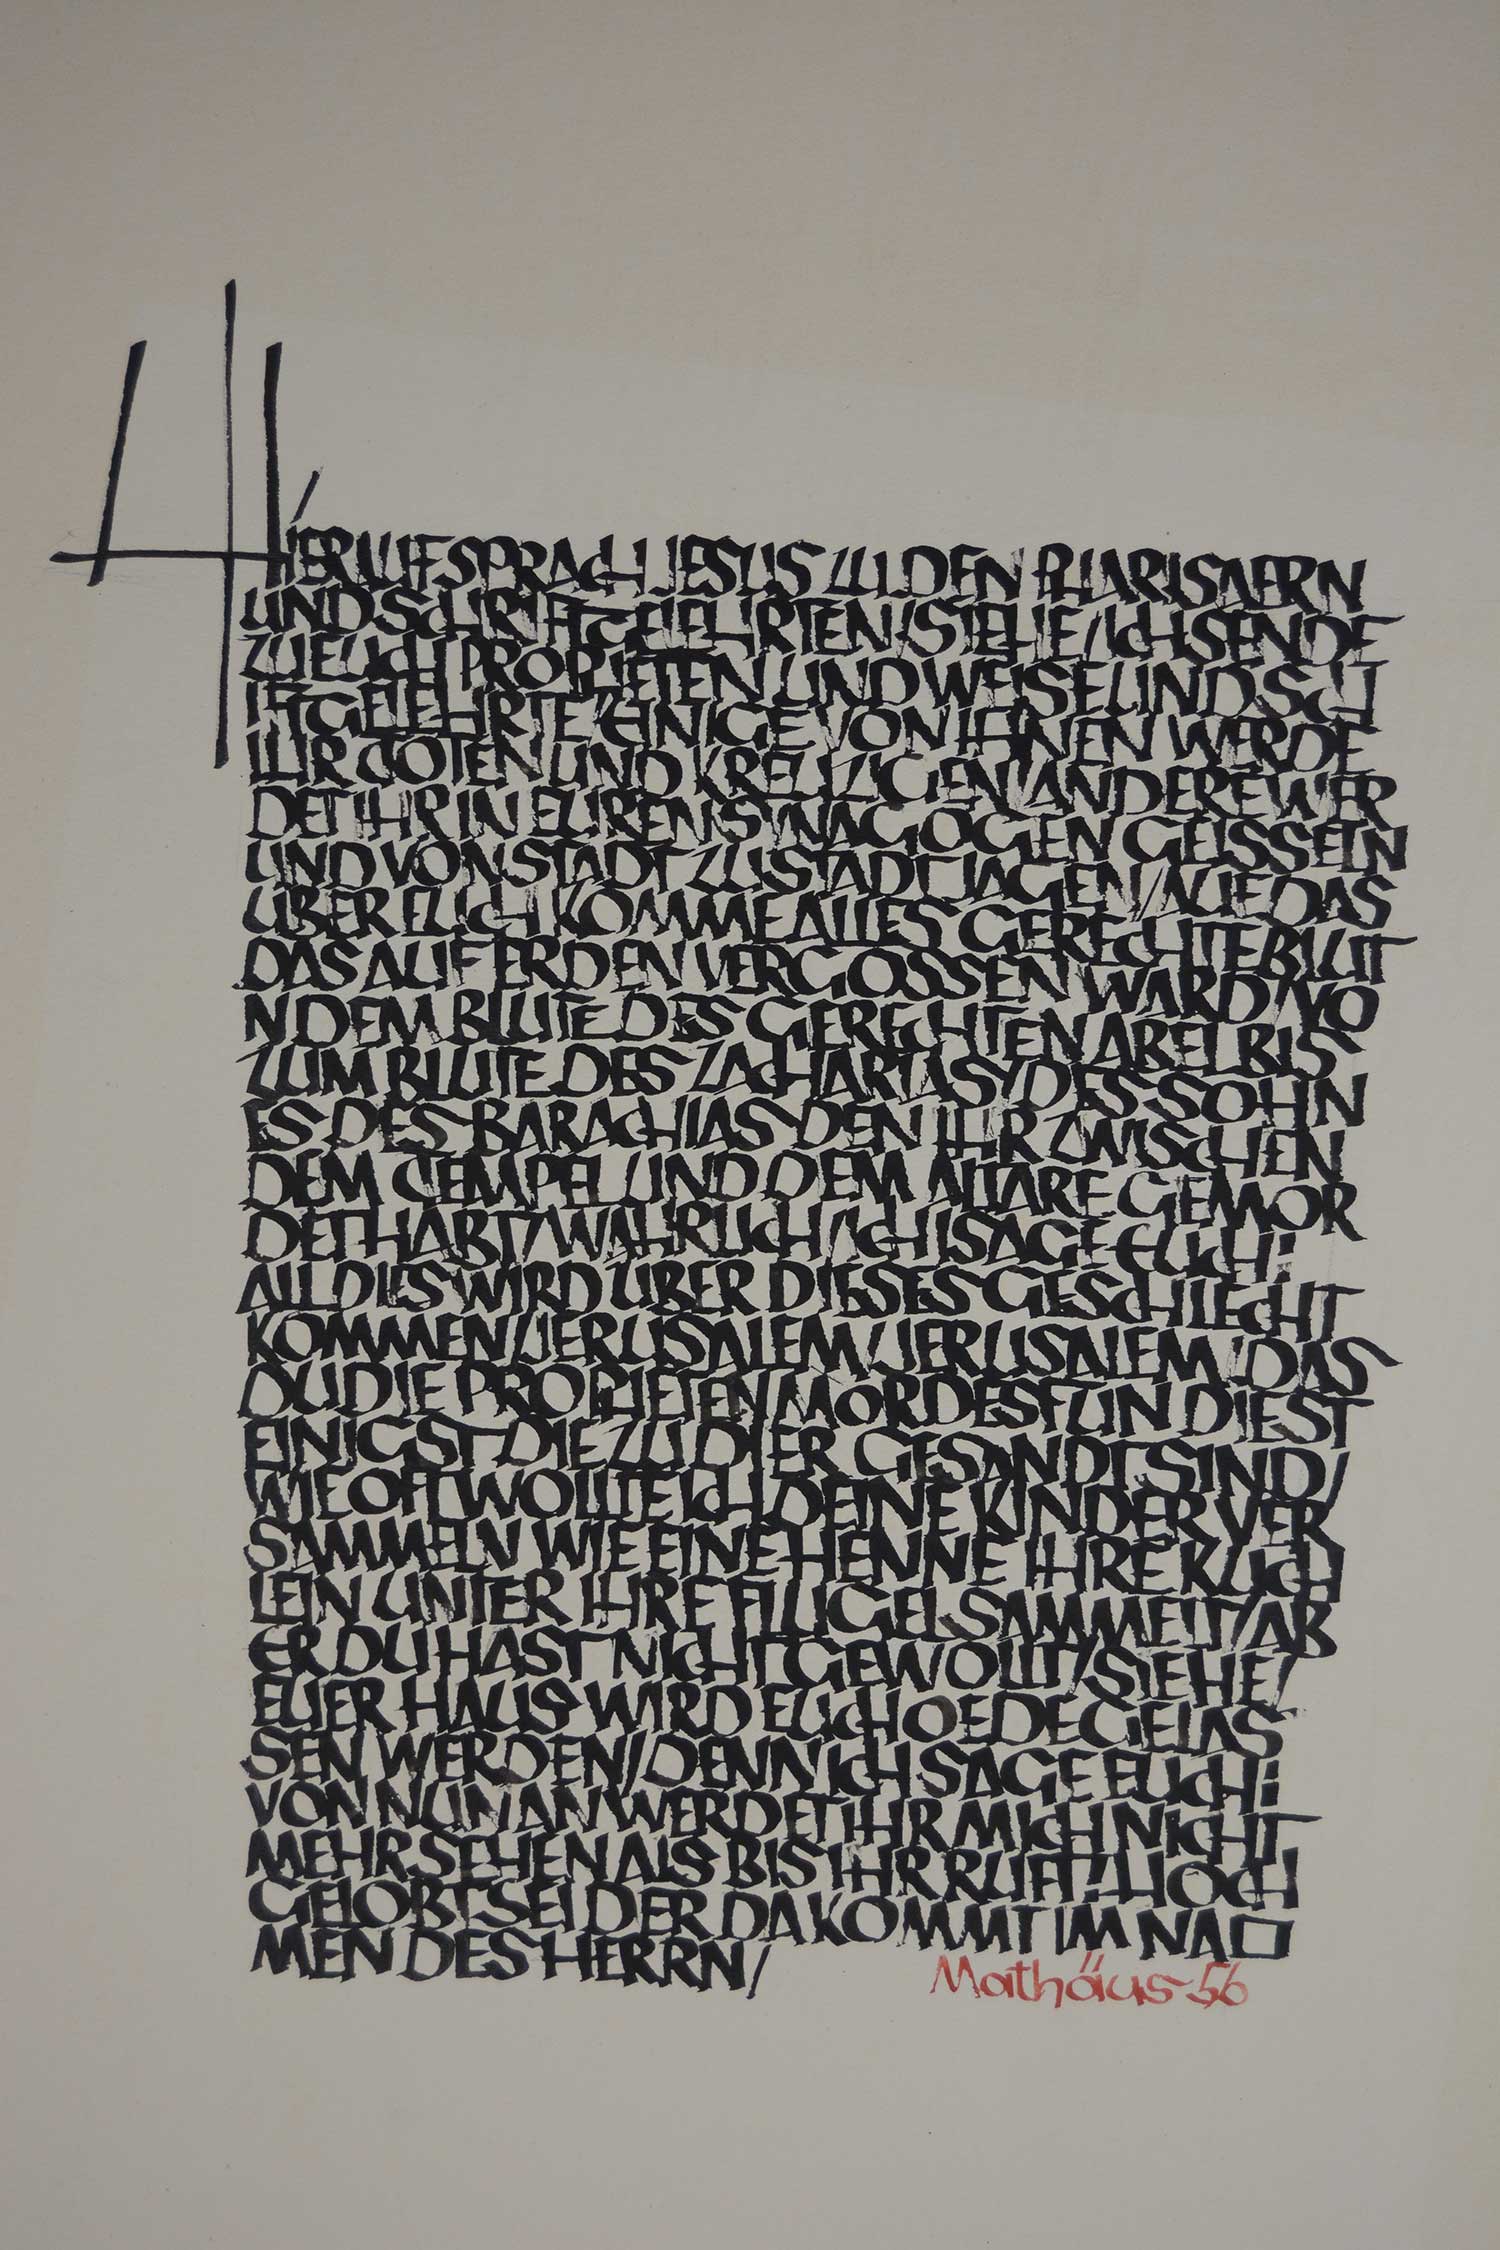 HIERAUF SPRACH JESUS ZU DEN PHARISAERN
UND SCHRIFTGELEHRTEN/SIEHE/ICH SENDE
ZU EUCH PROPHETEN UND WEISE UND SCH
IFTGELEHRTE/EINIGE VON IHNEN WERDE
IHR TÖTEN UND KREUZIGEN/ANDERE WER
DET IHR IN EUREN SYNAGOGEN GEISSELN
UND VON STADT ZU STADT JAGEN/AUF DAS
ÜBER EUCH KOMME ALLES GERECHTE BLUT
DAS AUF ERDEN VERGOSSEN WARD/VO
N DEM BLUTE DES GERECHTEN ABEL BIS
ZUM BLUTE DES ZACHARIAS/DES SOHN
ES DES BARACHIAS/DEN IHR ZWISCHEN
DEM TEMPEL UND DEM ALTARE GEMOR
DET HABT/WAHRLICH/ICH SAGE EUCH:
ALL DIES WIRD ÜBER DIESES GESCHLECHT
KOMMEN/JERUSALEM/JERUSALEM/DAS
DU DIE PROPHETEN/MORDES UND DIE ST
EINIGST DIE ZU DIER GESANDT SIND/
WIE OFT WOLLTE ICH DEINE KINDER VER
SAMMELN WIE EINE HENNE IHRE KÜCH
LEIN UNTER IHRE FLÜGEL SAMMELT/AB
ER DU HAST NICHT GEWOLLT/SIEHE/
EUER HAUS WIRD EUCH OEDE GELAS
SEN WERDEN/DENN ICH SAGE EUCH:
VON NUN AN WERDET IHR MICH NICHT
MEHR SEHEN ALS BIS IHR RUFT:HOCH
GELOBT SEI DER DA KOMMT IM NA
MEN DES HERRN/
Mathäus 56